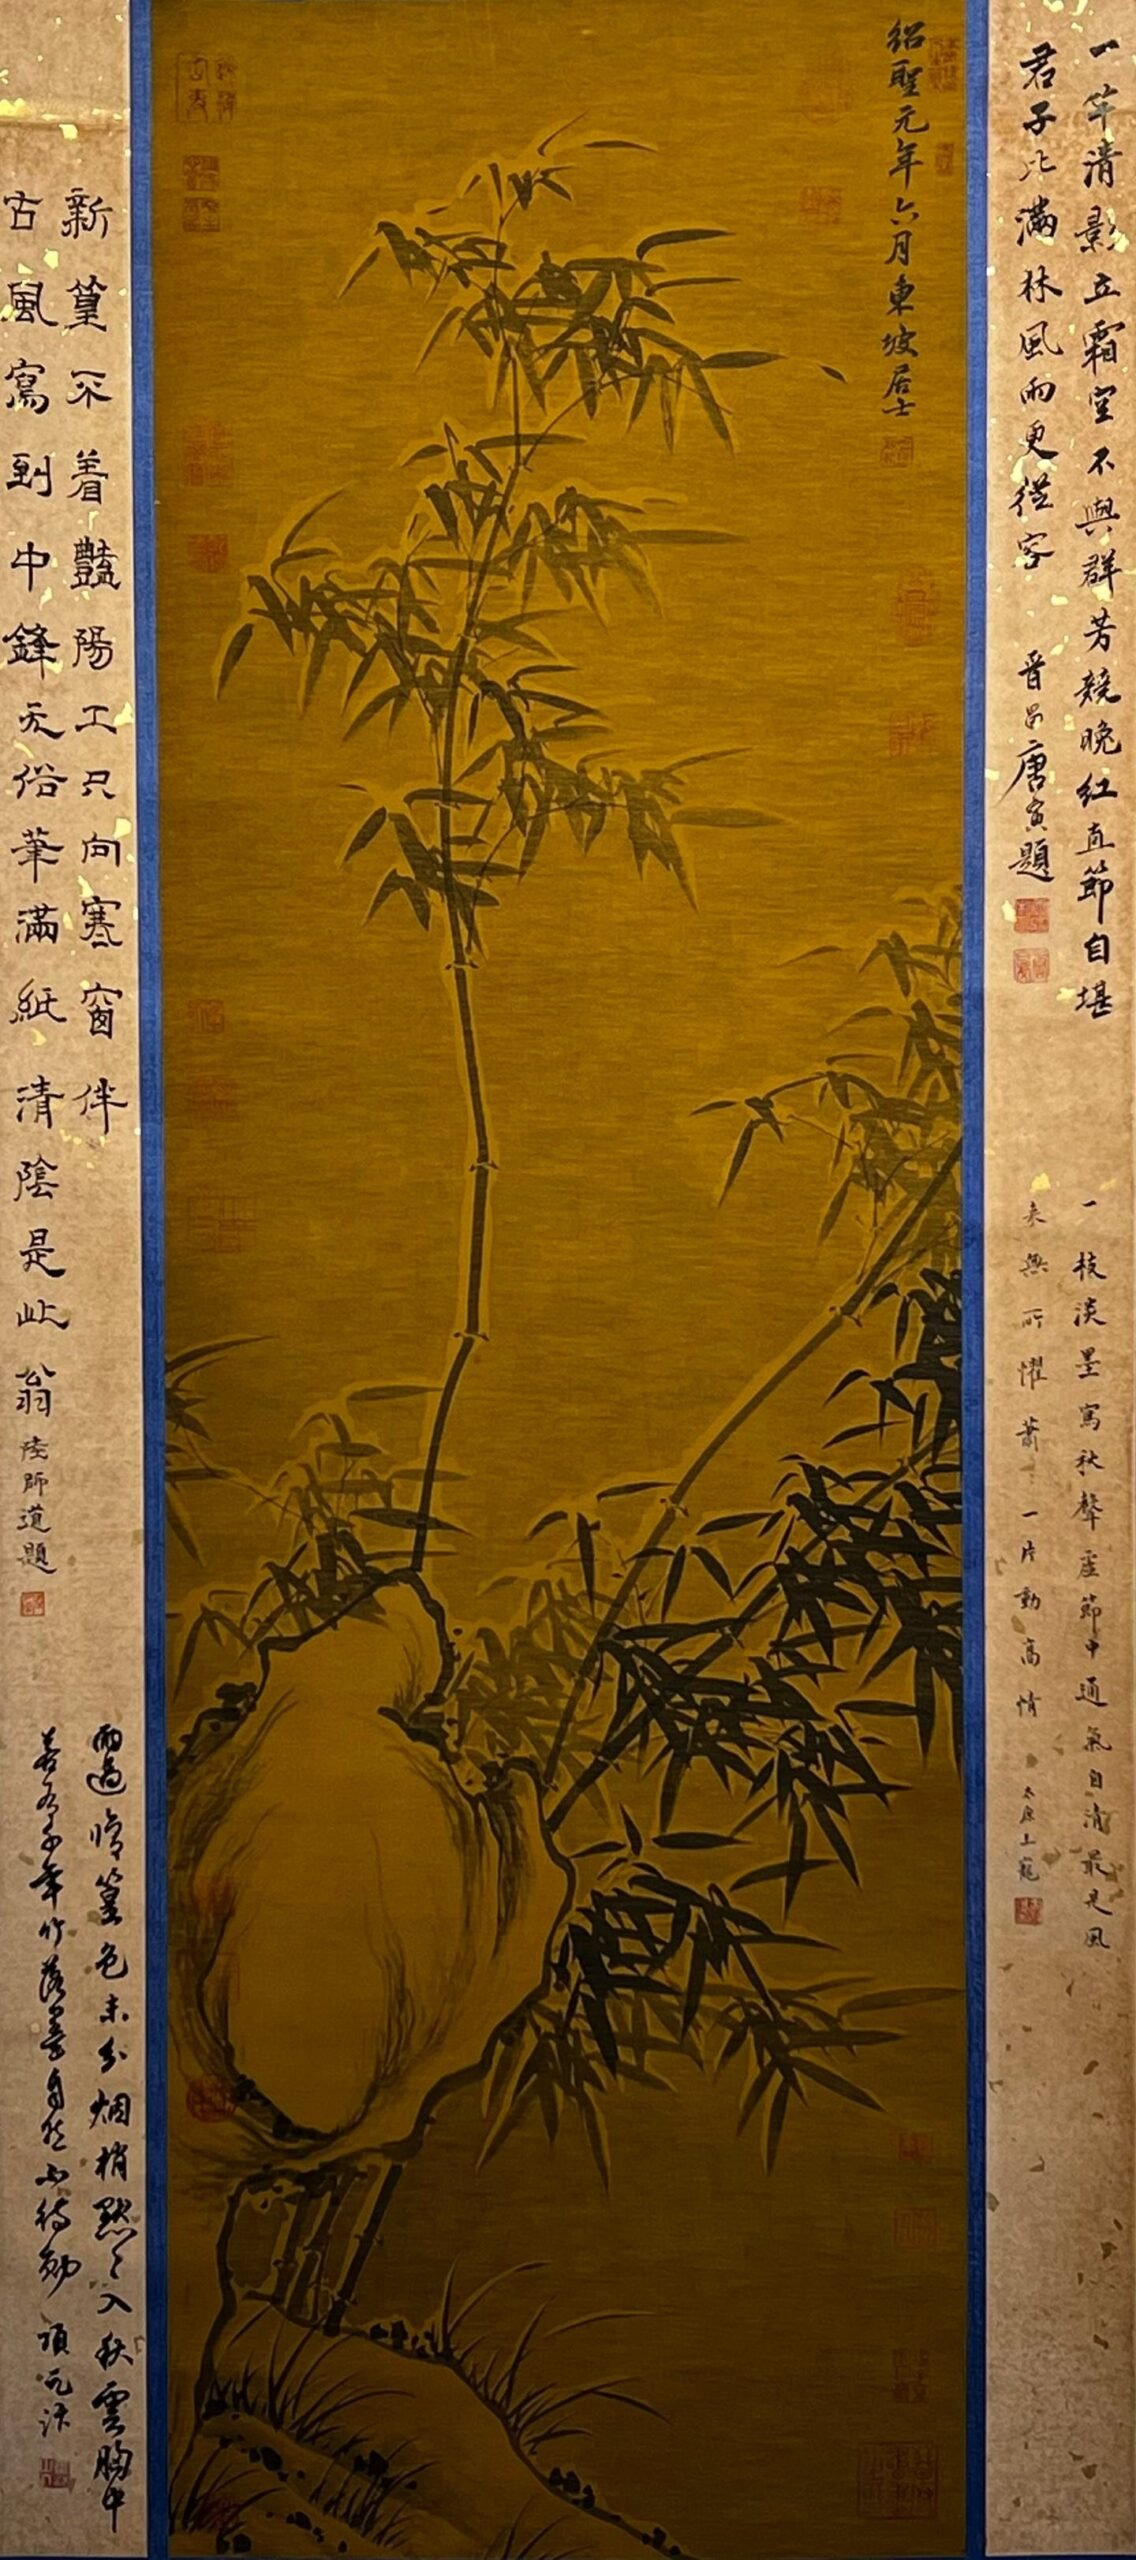 紹聖元年六月東坡居士
一竿清影立霜空不與群芳競晚紅直節自堪
君子比滿林風雨更從容
晉昌唐寅題
一枝淡墨寫秋聲虛節中通氣自清最是風
來無所懼蕭蕭一片動高情
太原王寵
新篁不着豔陽工只向寒窗伴
古風寫到中鋒无俗筆滿紙清陰是此翁
陸師道題
雨過脩篁色未分烟梢默默入秋雲胸中
若有千年竹落墨自然不待勁
項元汴